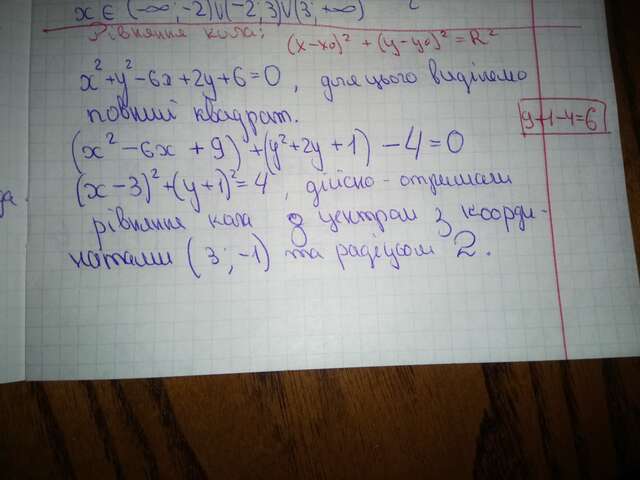 x ∈ (-∞; -2)∪(-2; 3)∪(3; +∞)
Рівняння кола: (x-x₀)² + (y-y₀)² = R²
x²+y²-6x+2y+6=0, для цього виділимо
повний квадрат.
9+1-4=6
(x²-6x+9)+(y²+2y+1)-4=0
(x-3)²+(y+1)²=4, дійсно - отримали
рівняння кола з центром з коорди-
натами (3; -1) та радіусом 2.